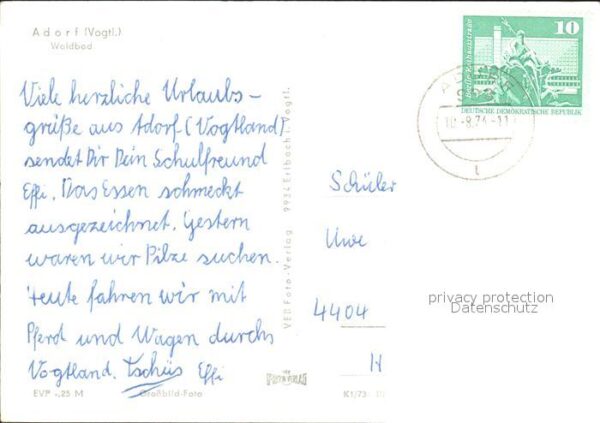 Adorf (Vogtl.)
Waldbad
Viele herzliche Urlaubs-
grüße aus Adorf (Vogtland)
sendet Dir Dein Schulfreund
Effi. Das Essen schmeckt
ausgezeichnet. Gestern
waren wir Pilze suchen.
Heute fahren wir mit
Pferd und Wagen durchs
Vogtland. Tschüs Effi
EVP -,25 M
Großbild-Foto
VEB Foto-Verlag 9934 Erlbach i. Vogtl.
FOTO VERLAG
K1/73
10
Berlin-Rathausstraße
DEUTSCHE DEMOKRATISCHE REPUBLIK
Schüler
Uwe
4404
H
privacy protection
Datenschutz